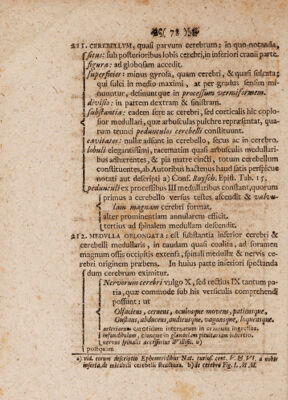 ( 78 )
211. CEREBELLUM, quasi parvum cerebrum; in quo notanda,
situs: sub posterioribus lobis cerebri, in inferiori cranii parte.
figura: ad globosam accedit.
superficies: minus gyrosa, quam cerebri, & quasi sulcata;
qui sulci in medio maximi, at per gradus sensim minuuntur, desinuntque in processum vermiformem.
divisio: in partem dextram & sinistram.
substantia: eadem fere ac cerebri, sed corticalis hic copiosior
medullari, quæ arbusculas pulchre repræsentat, quarum
trunci pedunculos cerebelli constituunt.
cavitates: nullæ adsunt in cerebello, secus ac in cerebro.
lobuli elegantissimi, racematim quasi arbusculis medullaribus
adhærentes, & pia matre cincti, totum cerebellum
constituentes, ab Autoribus hactenus haud satis perspicue
notati aut descripti a) Conf. Ruysch. Epist. Tab. 15.
pedunculi ex processibus III medullaribus constant, quorum
primus a cerebro versus testes accedit & valvulam
magnam cerebri format.
alter prominentiam annularem efficit.
tertius ad spinalem medullam descendit.
212. MEDULLA OBLONGATA: est substantia inferior cerebri &
cerebelli medullaris, in caudam quasi coalita, ad foramen
magnum ossis occipitis extensa, spinali medullæ & nervis cerebri
originem præbens. In hujus parte inferiori spectanda
dum cerebrum eximitur.
Nervorum cerebri vulgo X, sed rectius IX tantum paria,
quæ commodo sub his versiculis comprehendi
possunt: ut
Olfaciens, cernens, oculosque movens, patiensque,
Gustans, abducens, audiensque, vagansque, loquensque.
arteriarum carotidum internarum in cranium ingressus.
infundibulum, ejusque in glandulam pituitariam insertio.
nervus spinalis accessorius Willisii. b)
postquam
a) vid. eorum descriptio Ephemeridibus Nat. curios. cent. V. & VI. a nobis
inserta, de mirabili cerebelli structura. b) de cerebro Fig. I. M. M.